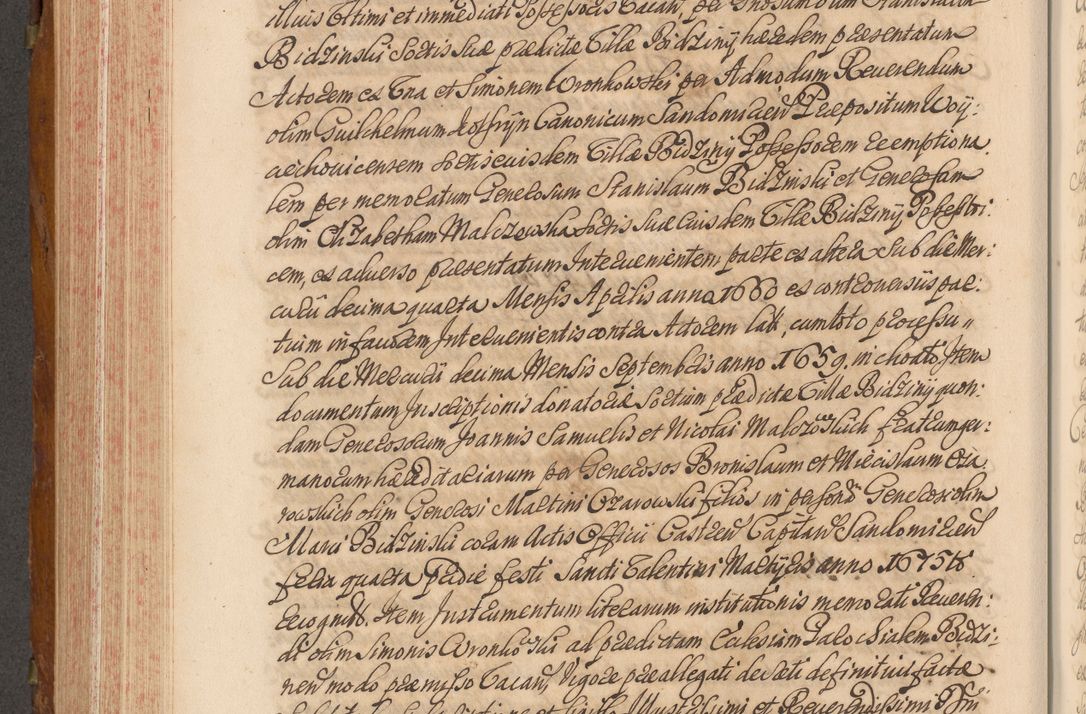 illius Ultimi et immediati Possessoris vacan, per Gnosum olim Stanislaum
Bidzinski Sortis suæ prædictæ Villæ Bidziny hæredem præsentatum
Actorem ex Una et Simonem Wronkowski per Admodum Reverendum
olim Guilhelmum Joffryn Canonicum Sandomirien Præpositum Woy:
aechovicensem sortis eiusdem Villæ Bidziny Possessorem exemptiona
lem per memoratum Generosum Stanislaum Bidzinski et Generosam
olim Elizabetham Malczewska sortis suæ eiusdem Villæ Bidziny Possestri:
cem, ex adverso præsentatum Intervenientem parte ex altera Sub die Mer:
curii decima quarta Mensis Aprilis anno 1660 ex controversiis par:
tium in favorem Intervenientis contra Actorem lat, cum toto processu
Sub die Mercurii decima Mensis Septembris anno 1659. in choato, Item
documentum Inscriptionis donatoriæ Sortium prædictæ Villæ Bidziny quon:
dam Generosorum Joannis Samuelis et Nicolai Malczowskich fratrum ger:
manorum hæreditariarum per Generosos Bronislaum et Miecislaum Oza
rowskich olim Generosi Martini Ozarowski filios in personā Generosi olim
Marci Bidzinski coram Actis Officii Castren Capitan Sandomirien
feria quarta pridie festi Sancti Valentini Martyris anno 1675ti
recognit. Item Instrumentum literarum institutionis memorati Reveren:
di olim Simonis Wronkowski ad prædictam Ecclesiam Parochialem Bidzi:
nen modo præmisso vacan, Vigore præallegati decreti definitivi factæ
Illustrissimi et Reverendissimi Dni